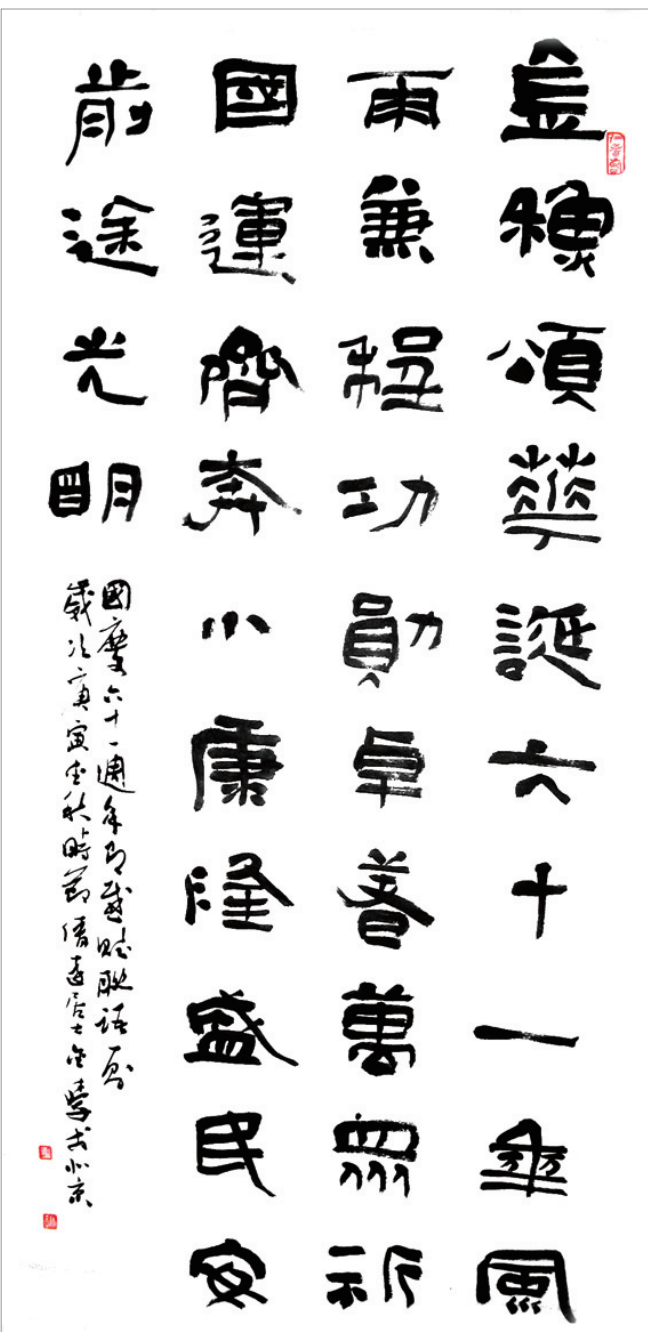 金秋頌華誕六十一年風
雨兼程功勳卓著萬眾祈
國運齊奔小康隆盛民安
前途光明
國慶六十一週年即感賦聯語一則
歲次庚寅秋時節清遠居士金書北京